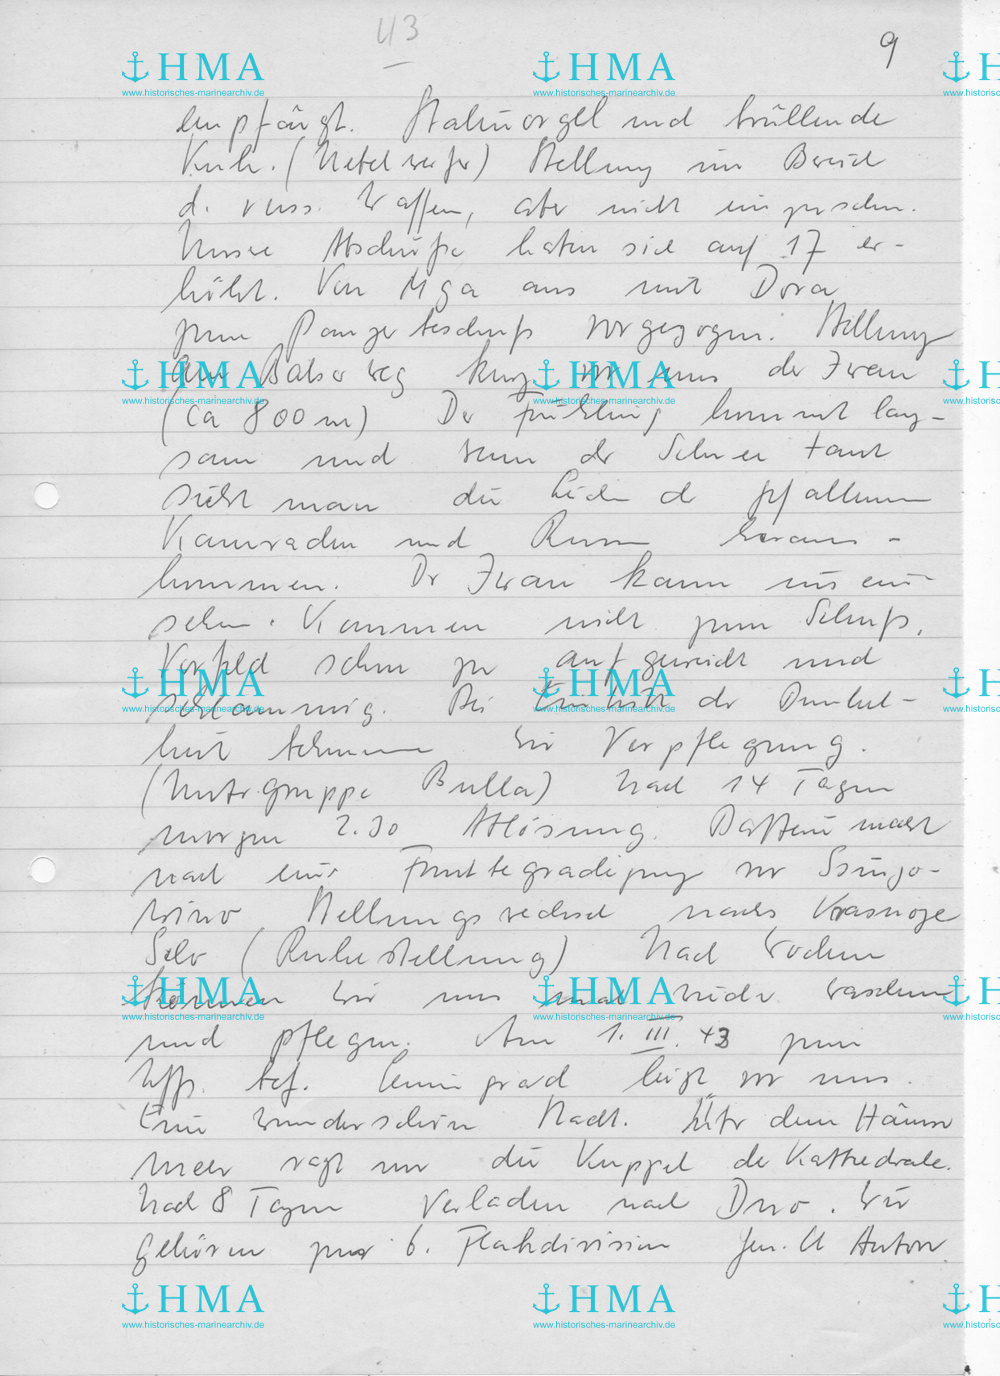 43
9
empfängt. Stalinorgel und brüllende
Kuh. (Nebelwerfer) Stellung im Bereich
d. russ. Waffen, aber nicht eingesehen.
Unsere Abschüße haben sich auf 17 er-
höht. Von Mga aus mit Dora
zum Panzerbeschuß vorgezogen. Stellung
am kurz vor uns der Iwan
(ca 800 m) Der Frühling kommt lang-
sam und wenn der Schnee taut
sieht man die der gefallenen
Kameraden und Russen heraus-
kommen. Der Iwan kann uns ein-
sehen. Kommen nicht zum Schuß,
Vorfeld schon zu aufgeweicht und
schlammig. Bei Eintritt der Dunkel-
heit bekommen wir Verpflegung.
(Untergruppe Bulla) Nach 14 Tagen
morgen 2.30 Ablösung. Batterie macht
nach einer Frontbegradigung vor
Stellungswechsel nach Krasnoje
Selo (Ruhestellung) Nach Wochen
können wir uns mal wieder waschen
und pflegen. Am 1. III. 43 zum
Uffz. bef. Leningrad liegt vor uns.
Eine wunderschöne Stadt. Über dem Häuser
meer ragt nur die Kuppel der Kathedrale.
Nach 8 Tagen Verladen nach Dno. Wir
gehören zur 6. Flakdivision Gen. Lt Anton
HMA
www.historisches-marinearchiv.de